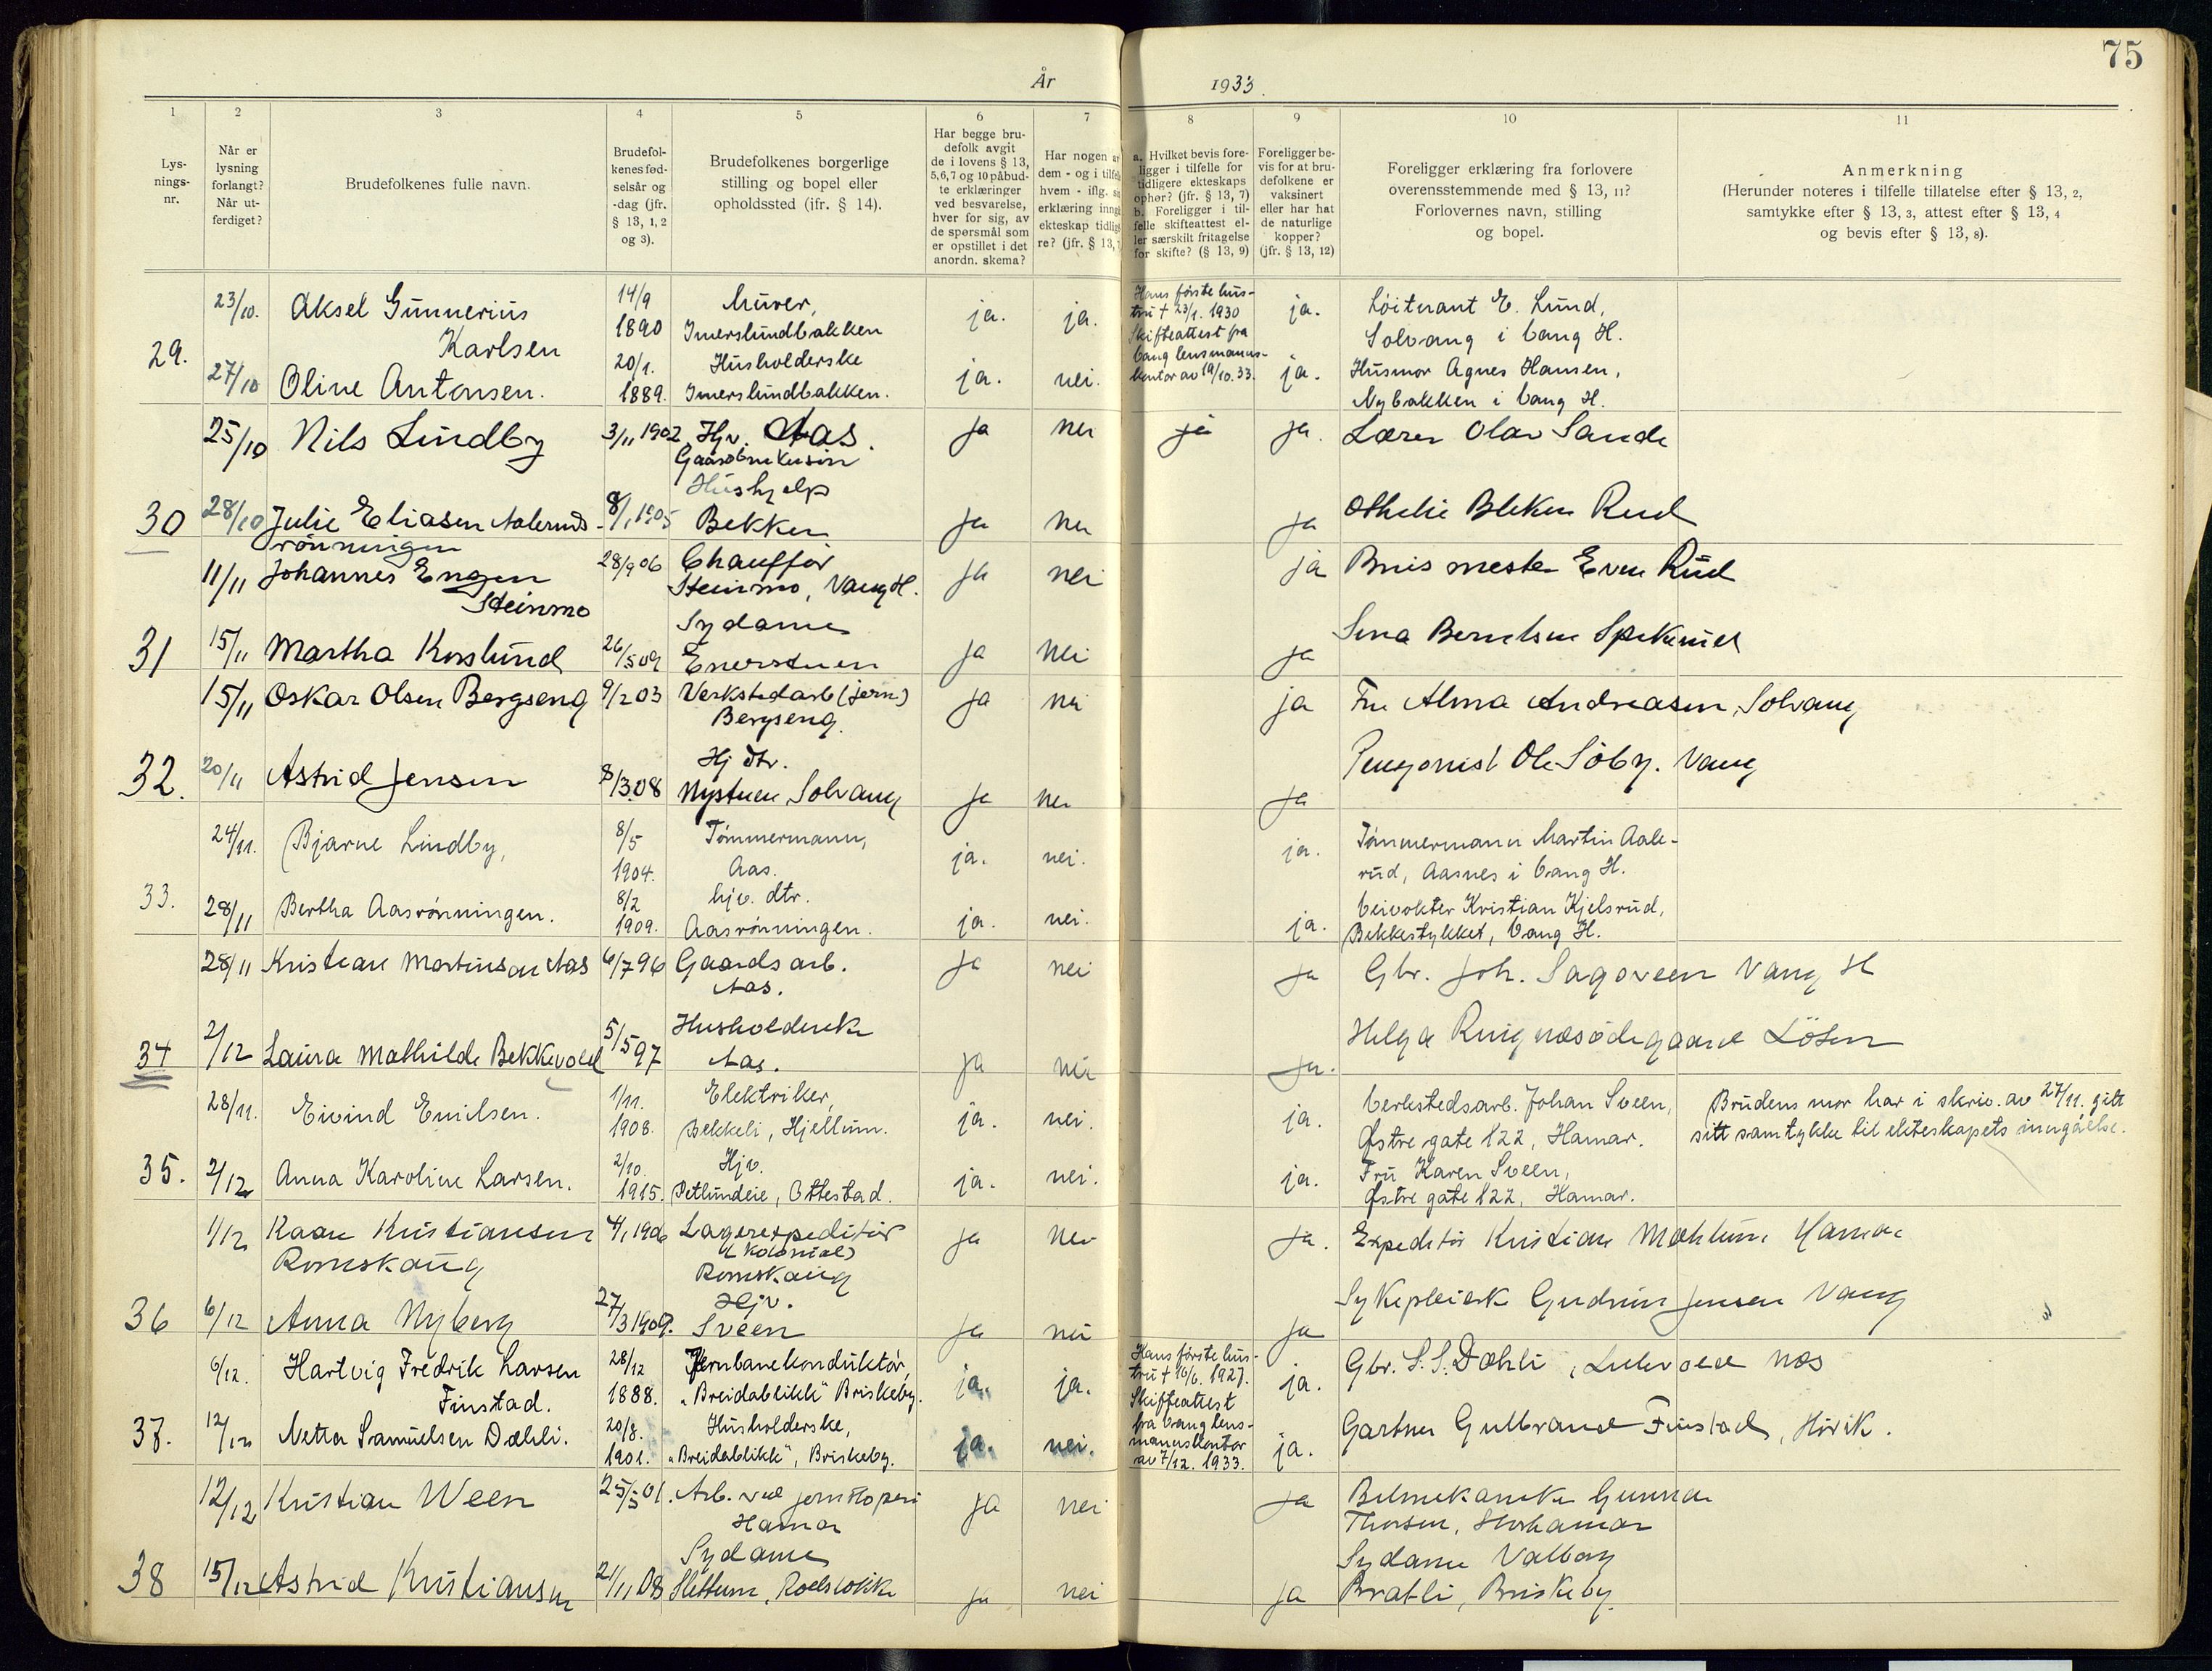 75
År 1933.
1 2 3 4 5 6 7 8 9 10 11
Lys-
nings-
nr.
Når er
lysning
forlangt?
Når ut-
ferdiget?
Brudefolkenes fulle navn.
Brudefol-
kenes fød-
selsår og
-dag (jfr.
§ 13, 1, 2
og 3).
Brudefolkenes borgerlige
stilling og bopel eller
opholdssted (jfr. § 14).
Har begge bru-
defolk avgit
de i lovens § 13,
5, 6, 7 og 10 påbud-
te erklæringer
ved besvarelse,
hver for sig, av
de spørsmål som
er opstillet i det
anordn. skema?
Har nogen av
dem - og i tilfelle
hvem - iflg. sin
erklæring inngått
ekteskap tidlige-
re? (jfr. § 13,
a. Hvilket bevis fore-
ligger i tilfelle for
tidligere ekteskaps
ophør? (jfr. § 13, 7)
b. Foreligger i til-
felle skifteattest el-
ler særskilt fritagelse
for skifte? (§ 13, 9)
Foreligger be-
vis for at bru-
defolkene er
vaksinert
eller har hat
de naturlige
kopper?
(jfr. § 13, 12)
Foreligger erklæring fra forlovere
overensstemmende med § 13, 11?
Forlovernes navn, stilling
og bopel.
Anmerkning
(Herunder noteres i tilfelle tillatelse efter § 13, 2,
samtykke efter § 13, 3, attest efter § 13, 4
og bevis efter § 13, 8).
29.
23/10. Aksel Gunnerius
Karlsen
14/9
1890
Murer,
Imerslundbakken
ja. ja.
Hans første hus-
tru † 23/1. 1930
Skifteattest fra
Vang lensmanns-
kontor av 19/10. 33.
ja.
Løitnant E. Lund,
Solvang i Vang H.
27/10 Oline Antonsen.
20/1.
1889.
Husholderske
Imerslundbakken.
ja. nei. ja.
Husmor Agnes Hansen,
Nybakken i Vang H.
25/10 Nils Lindby 3/11 1902 Hjv. Aas.
Gaardbrukersøn
ja nei ja ja.
Lærer Olav Sande
30
28/10 Julie Eliasen Aalerud-
rønningen
8/1 1905
Hushjelp
Bekken
ja nei ja
Othelie Bleken Rud
11/11 Johannes Engen
Steinmo
28/9 06
Chauffør
Steinmo, Vang H.
ja nei ja
Bruismester Even Rud
31
15/11 Martha Korslund
26/5 09
Sydame
Enerstuen
ja nei ja
Sina Berntsen
15/11 Oskar Olsen Bergseng 9/2 03
Verkstedarb (jern)
Bergseng.
ja nei ja
Fru Alma Andreasen, Solvang
32.
20/11 Astrid Jensen
8/3 08
Hj dtr.
Nystuen, Solvang
ja nei ja
Pensjonist Ole Søby. Vang
33.
24/11. Bjarne Lindby,
8/5
1904.
Tømmermann,
Aas.
ja. nei. ja.
Tømmermann Martin Aale-
rud, Aasnes i Vang H.
28/11 Bertha Aasrønningen.
8/2
1909.
hjv. dtr.
Aasrønningen.
ja. nei. ja.
Veivokter Kristian Kjelsrud,
Bekkestykket, Vang H.
28/11 Kristian Martinsen Aas 6/7 96
Gaardsarb.
Aas.
ja nei ja
Gbr. Joh. Sagoveen Vang H
34
2/12 Laura Mathilde Bekkevold
5/5 97
Husholderske
Aas.
ja nei ja.
Helga Ringnesødegaard Løten
35.
28/11. Eivind Emilsen.
1/11.
1908.
Elektriker,
Bekkeli, Hjellum.
ja. nei. ja.
Verkstedsarb. Johan Sveen,
Østre gate 122, Hamar.
Brudens mor har i skriv. av 27/11. gitt
sitt samtykke til ekteskapets inngåelse.
2/12 Anna Karoline Larsen.
2/10.
1915.
Hjv.
Petlundeie, Ottestad.
ja. nei. ja.
Fru Karen Sveen,
Østre gate 122, Hamar.
1/12 Kaare Kristiansen
Romskaug
4/1 1906
Lagerekspeditør
(kolonial)
Romskaug
ja nei ja.
Expeditør Kristian Mæhlum Hamar
36
6/12 Anna Nyberg
27/3 1909.
Hjv.
Sveen
ja nei ja
Sykepleierske Gudrun Jensen Vang
37.
6/12. Hartvig Fredrik Larsen
Finstad.
28/12
1888.
Jernbanekonduktør,
"Breidablikk" Briskeby.
ja. ja.
Hans første hus-
tru † 16/6. 1927.
Skifteattest
fra Vang lens-
mannskontor
av 7/12. 1933.
ja.
Gbr. S. S. Dæhli, Nes
12/12 Netta Samuelsen Dæhli.
20/8.
1901.
Husholderske,
"Breidablikk", Briskeby.
ja. nei. ja.
Gartner Gulbrand Finstad, Høvik.
38
12/12 Kristian Ween
25/5 01.
Arb. ved jernstøperi
Hamar
ja nei ja
Bilmekaniker Gunnar
Thorsen, Storhamar
15/12 Astrid Kristiansen
21/11 08
Sydame
Slettum, Roelsløkke
ja nei ja
Sydame Valborg
Bratli, Briskeby.